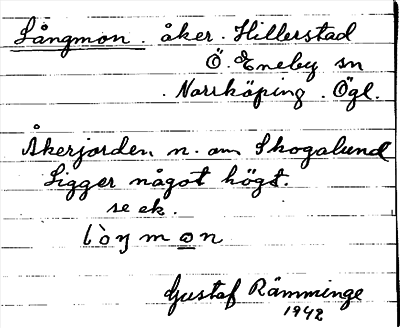 Långmon. åker. Hillerstad
Ö. Eneby sn
Norrköping. Ögl.
Åkerjorden n. om Skogalund
Ligger något högt.
se ek.
Gustaf Rämminge
1942